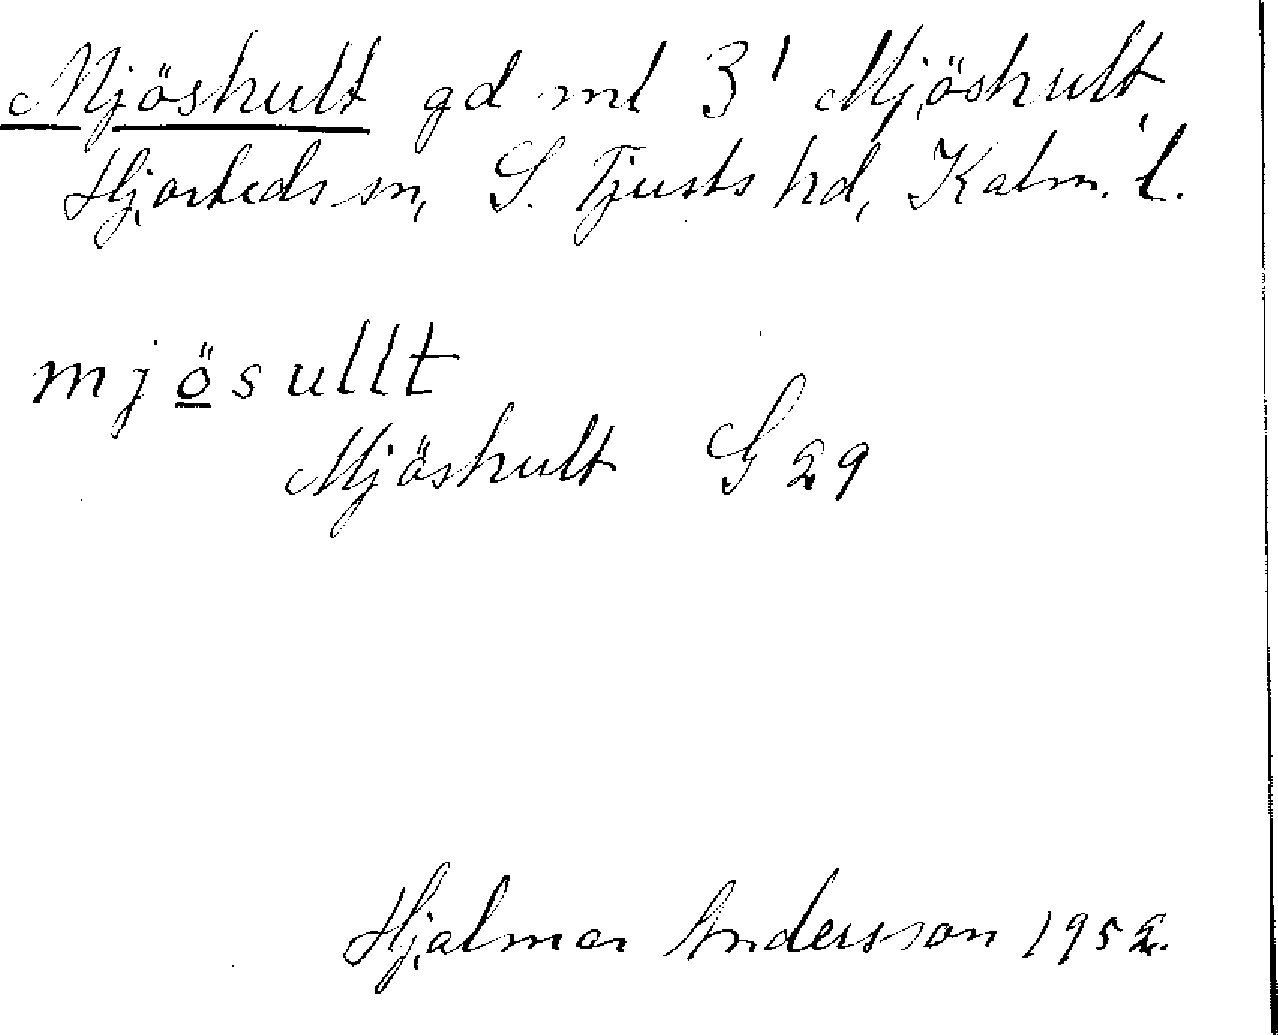 Mjöshult gd ml 3¹ Mjöshult,
Hjorteds sn, S. Tjusts hd, Kalm. l.
mjösullt
Mjöshult G 29
Hjalmar Andersson 1952.